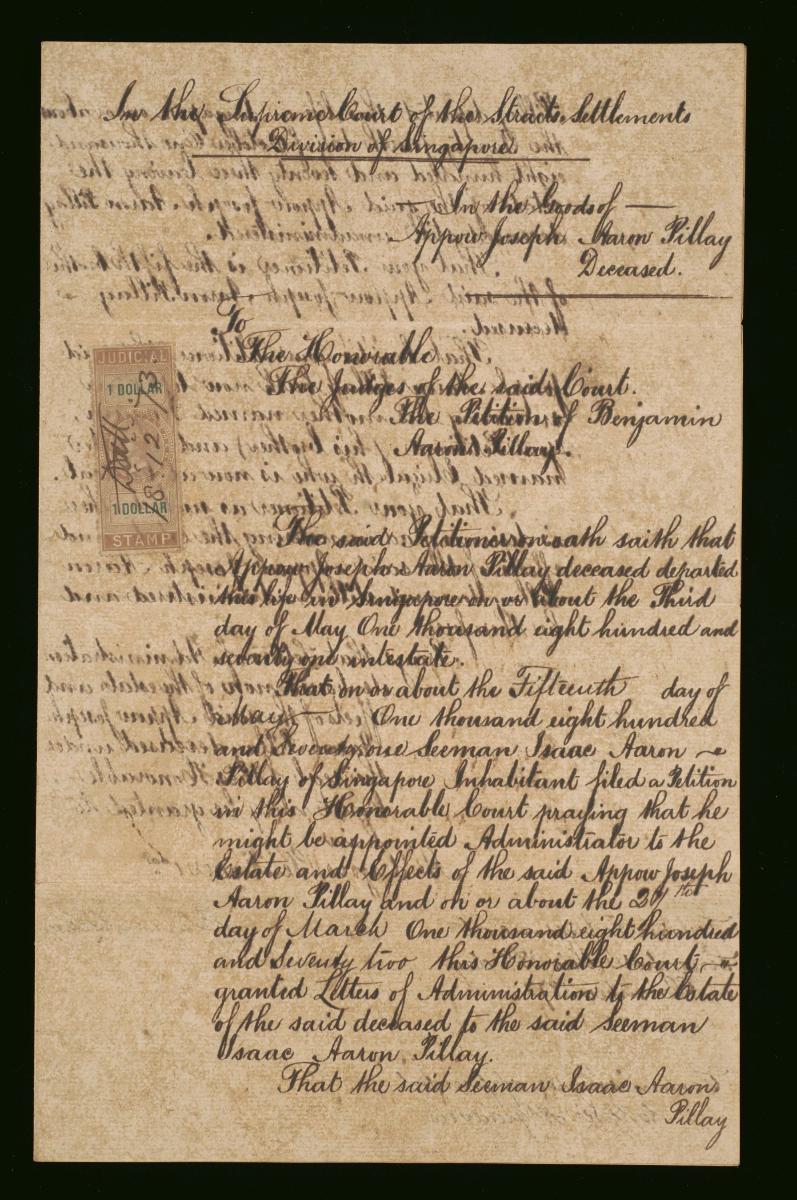 In the Supreme Court of the Straits Settlements
Division of Singapore
In the Goods of
Appow Joseph Aaron Pillay
Deceased.
To
The Honorable
The Judges of the said Court.
The Petition of Benjamin
Aaron Pillay.
JUDICIAL
1 DOLLAR
18/12/73
1 DOLLAR
STAMP
The said Petitioner on oath saith that
Appow Joseph Aaron Pillay deceased departed
this life in Singapore on or about the Third
day of May One thousand eight hundred and
seventy one intestate.
That on or about the Fifteenth day of
May One thousand eight hundred
and Seventy one Seeman Isaac Aaron
Pillay of Singapore Inhabitant filed a Petition
in this Honorable Court praying that he
might be appointed Administrator to the
Estate and Effects of the said Appow Joseph
Aaron Pillay and on or about the 27th
day of March One thousand eight hundred
and Seventy two this Honorable Court
granted Letters of Administration to the Estate
of the said deceased to the said Seeman
Isaac Aaron Pillay.
That the said Seeman Isaac Aaron
Pillay